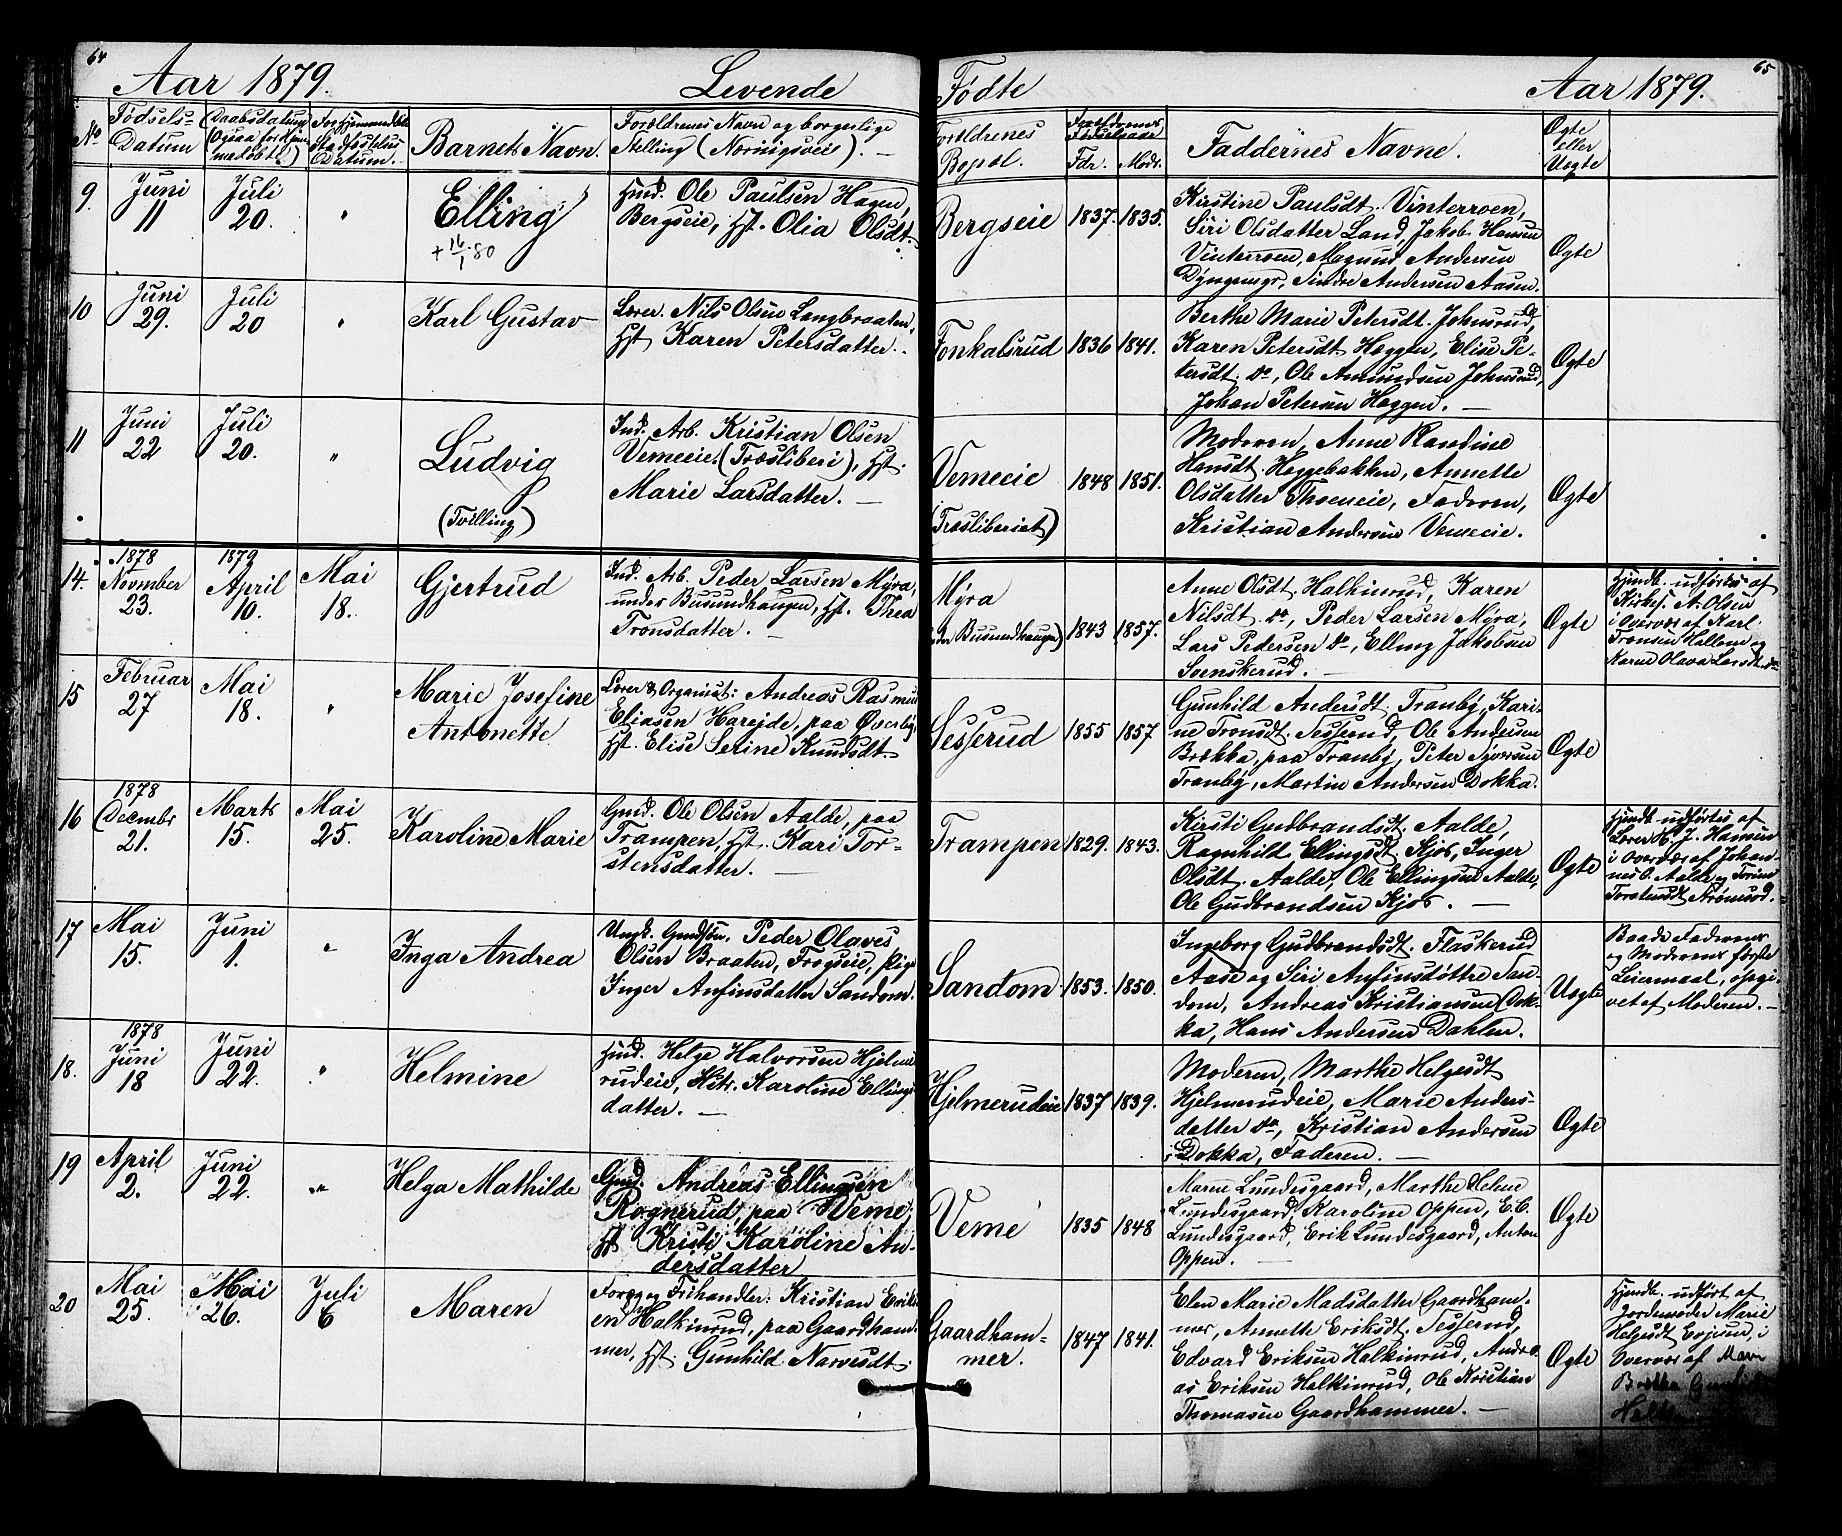 64
Aar 1879.
Levende
No
Fødsels-
Datum
Daabsdatum
Datum.
Barnets Navn.
Forældrenes Navn og borgerlige
Stilling (Næringsvei). —
9.
Juni
11
Juli
20.
"
Elling
+ 16/1 80
Hmd. Ole Paulsen Hagen,
Bergseie, Hst. Olia Olsdt.
10
Juni
29.
Juli
20
"
Karl Gustav
Lærer. Nils Olsen Langbraaten,
Hst. Karen Petersdatter.
11
Juni
22
Juli
20.
"
Ludvig
(Tvilling)
Ind. Arb. Kristian Olsen
Vemeeie, (Træsliberi), Hst.
Marie Larsdatter. —
14.
1878
November
23.
1879
April
10.
Mai
18.
Gjertrud
Ind. Arb. Peder Larsen Myra,
under Busundhaugen, Hst. Thea
Tronsdatter. —
15
Februar
27
Mai
18.
"
Marie Josefine
Antonette
Lærer & Organist: Andreas Rasmus
Eliasen Hareide, paa Øverby,
Hst. Elise Serine Knudsdt.
16
1878
Decembr
21.
Marts
15.
Mai
25.
Karoline Marie
Gmd. Ole Olsen Aalde, paa
Trampen, Hst. Kari Tor-
stensdatter. —
17
Mai
15.
Juni
1.
"
Inga Andrea
Ungk. Gmdsøn. Peder Olaves
Olsen Braaten, Frogseie, Pige
Inger Anfinsdatter Sandom.
18.
1878
Juni
18
Juni
22.
"
Helmine
Hmd. Helge Halvorsen Hjelme
rudeie, Hstr. Karoline Ellings
datter. —
19
April
2.
Juni
22.
"
Helga Mathilde
Gmd. Andreas Ellingsen
Rognerud, paa Veme,
Hst. Kristi Karoline An-
dersdatter
20
Mai
25.
Mai
26.
Juli
6
Maren
Forpg og Frihandler: Kristian Erik-
sen Halkinrud, paa Gaardham-
mer, Hst. Gunhild Narvesdt.
65
Fødte
Aar 1879.
Forældrenes
Bopæl.
Forældrenes
Fødselsaar
Fdr.
Modr.
Faddernes Navne.
Ægte
eller
Uægte
Bergseie
1837.
1835.
Kirstine Paulsdt. Vinterroen,
Siri Olsdatter Land, Jakob Hansen
Vinterroen, Magnus Andersen
Dyngmyr, Sindre Andersen Aasen.
Ægte
Fonkalsrud
1836
1841.
Berthe Marie Petersdt. Johnsrud,
Karen Petersdt. Haggen, Elise Pe-
tersdt. do, Ole Amundsen Johnsrud,
Johan Petersen Haggen. —
Ægte
Vemeeie
(Træsliberiet)
1848
1851.
Moderen, Anne Randine
Hansdt. Haggebakken, Annette
Olsdatter Thoeneie, Faderen,
Kristian Andersen Vemeeie.
Ægte
Myra
(under Busundhaugen)
1843
1857.
Anne Olsdt. Halkinrud, Karen
Nilsdt. do, Peder Larsen Myra,
Lars Pedersen do, Elling Jakobsen
Svenskerud. —
Ægte
Hjemdb. udførtes af
Kirkes. A. Olsen
i Overvær af Karl
Tronsen Hallom og
Karen Olava Larsdt. do
Sesserud
1855
1857
Gunhild Andersdt. Tranby, Kari-
ne Tronsdt. Sesserud, Ole Andersen
Brekka, paa Tranby, Peter Syversen
Tranby, Martin Andersen Dokka.
Ægte
Trampen
1829.
1843.
Kirsti Gudbrandsdt. Aalde,
Ragnhild Ellingsdt. Kjos, Inger
Olsdt. Aalde, Ole Ellingsen Aalde,
Ole Gudbrandsen Kjos. —
Ægte
Hjemdb. udførtes af
Lærer O. J. Hansen
i Overvær af Johan-
nes O. Aalde og Trine
Torstensdt. Strømsod.
Sandom.
1853.
1850.
Ingeborg Gudbrandsdt. Flaskerud
Aase og Siri Anfinsdøttre San-
dom, Andreas Kristiansen Dok-
ka, Hans Andersen Dahlen.
Uægte
Baade Faderens
og Moderens første
Leiermaal, opgi-
vet af Moderen. —
Hjelmerudeie
1837
1839.
Moderen, Marthe Helgesdt
Hjelmerudeie, Marie Anders-
datter do, Kristian Andersen
Dokka, Faderen. —
Ægte
Veme
1835
1848
Maren Lundesgaard, Marthe Helene
Lundesgaard, Karoline Oppen, E. C.
Lundesgaard, Erik Lundesgaard, Anton
Oppen. —
Ægte
Gaardham-
mer.
1847
1841.
Elen Marie Madsdatter Gaardham-
mer, Annette Eriksdt. Sesserud,
Edvard Eriksen Halkinrud, Andre-
as Eriksen Halkinrud, Ole Kristian
Thomasen Gaardhammer. —
Ægte
Hjemdb. udført af
Jordemoder Marie
Helgesdt Evjeun, i
Overvær af Maren